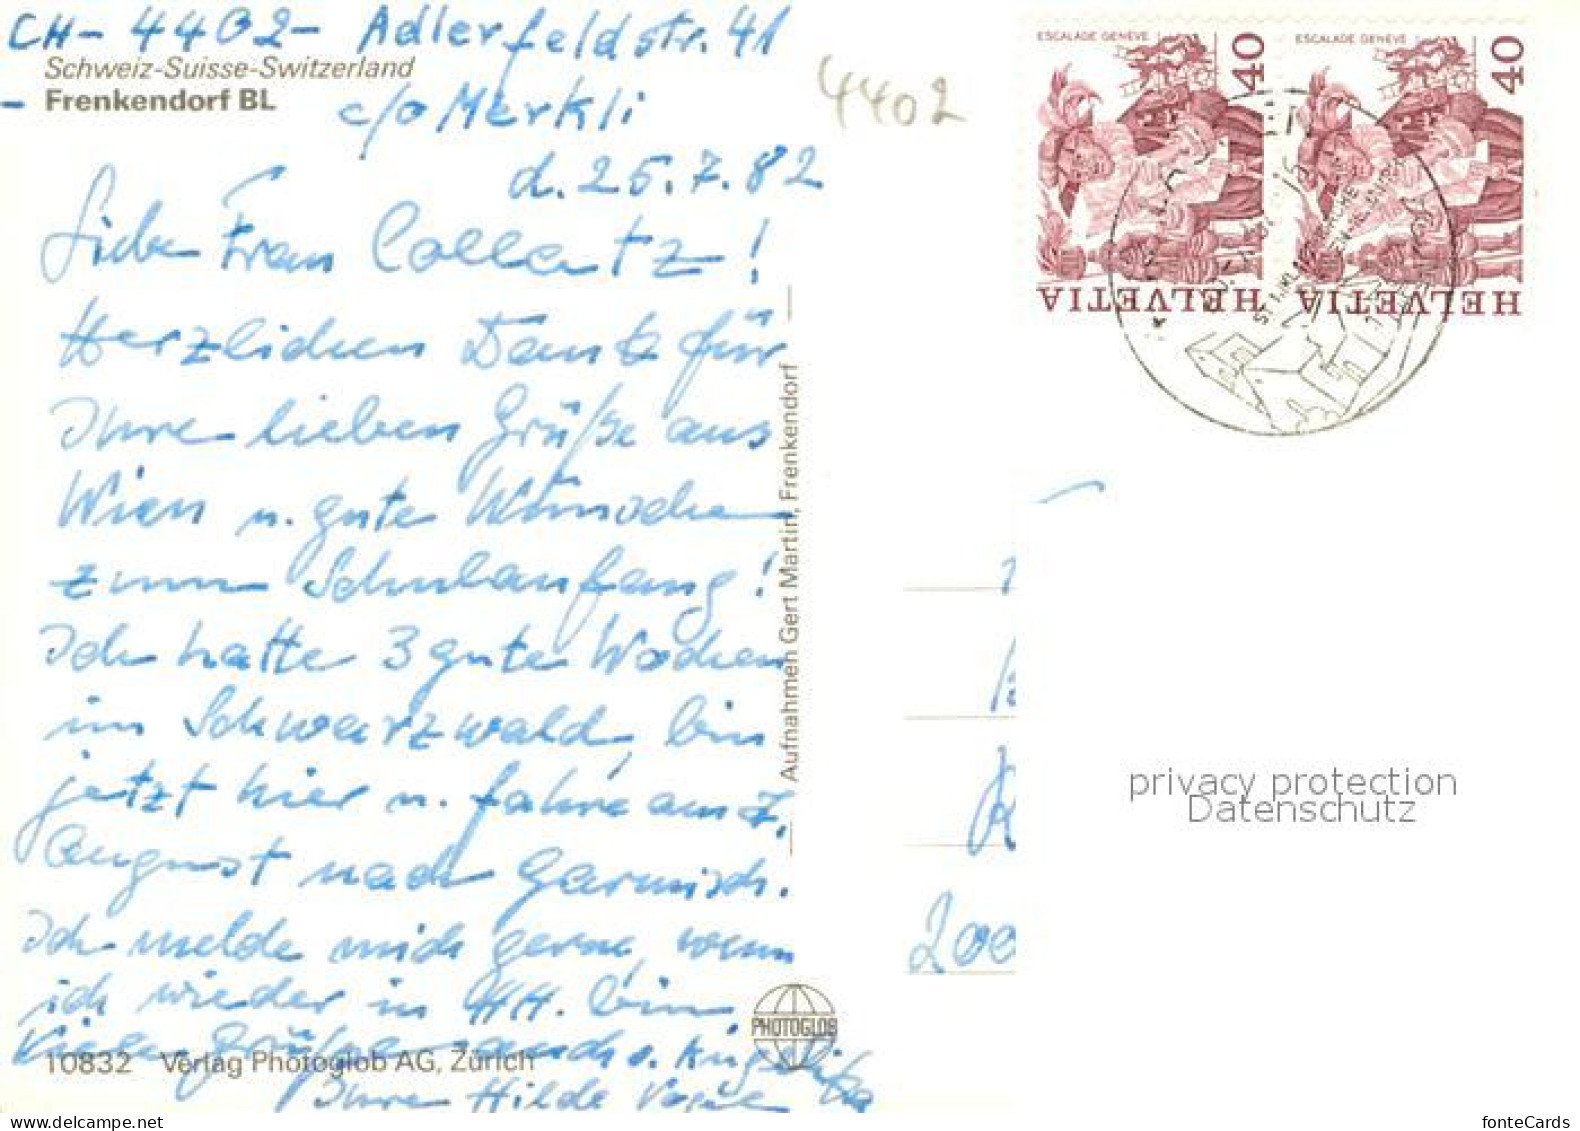 CH-4402- Adlerfeldstr. 41
Schweiz-Suisse-Switzerland
- Frenkendorf BL
c/o Merkli
4402
d. 25.7.82
Liebe Frau Collatz!
Herzlichen Dank für
Ihre lieben Grüße aus
Wien u. gute Wünsche
zum Schulanfang!
Ich hatte 3 gute Wochen
im Schwarzwald, bin
jetzt hier u. fahre am 7.
August nach Garmisch.
Ich melde mich gerne, wenn
ich wieder in HH. bin.
Viele Grüße auch v. Angelika
Ihre Hilde
10832 Verlag Photoglob AG, Zürich
PHOTOGLOB
Aufnahmen Gert Martin, Frenkendorf
ESCALADE GENÈVE
40
HELVETIA
ESCALADE GENÈVE
40
HELVETIA
200
privacy protection
Datenschutz
fonteCards